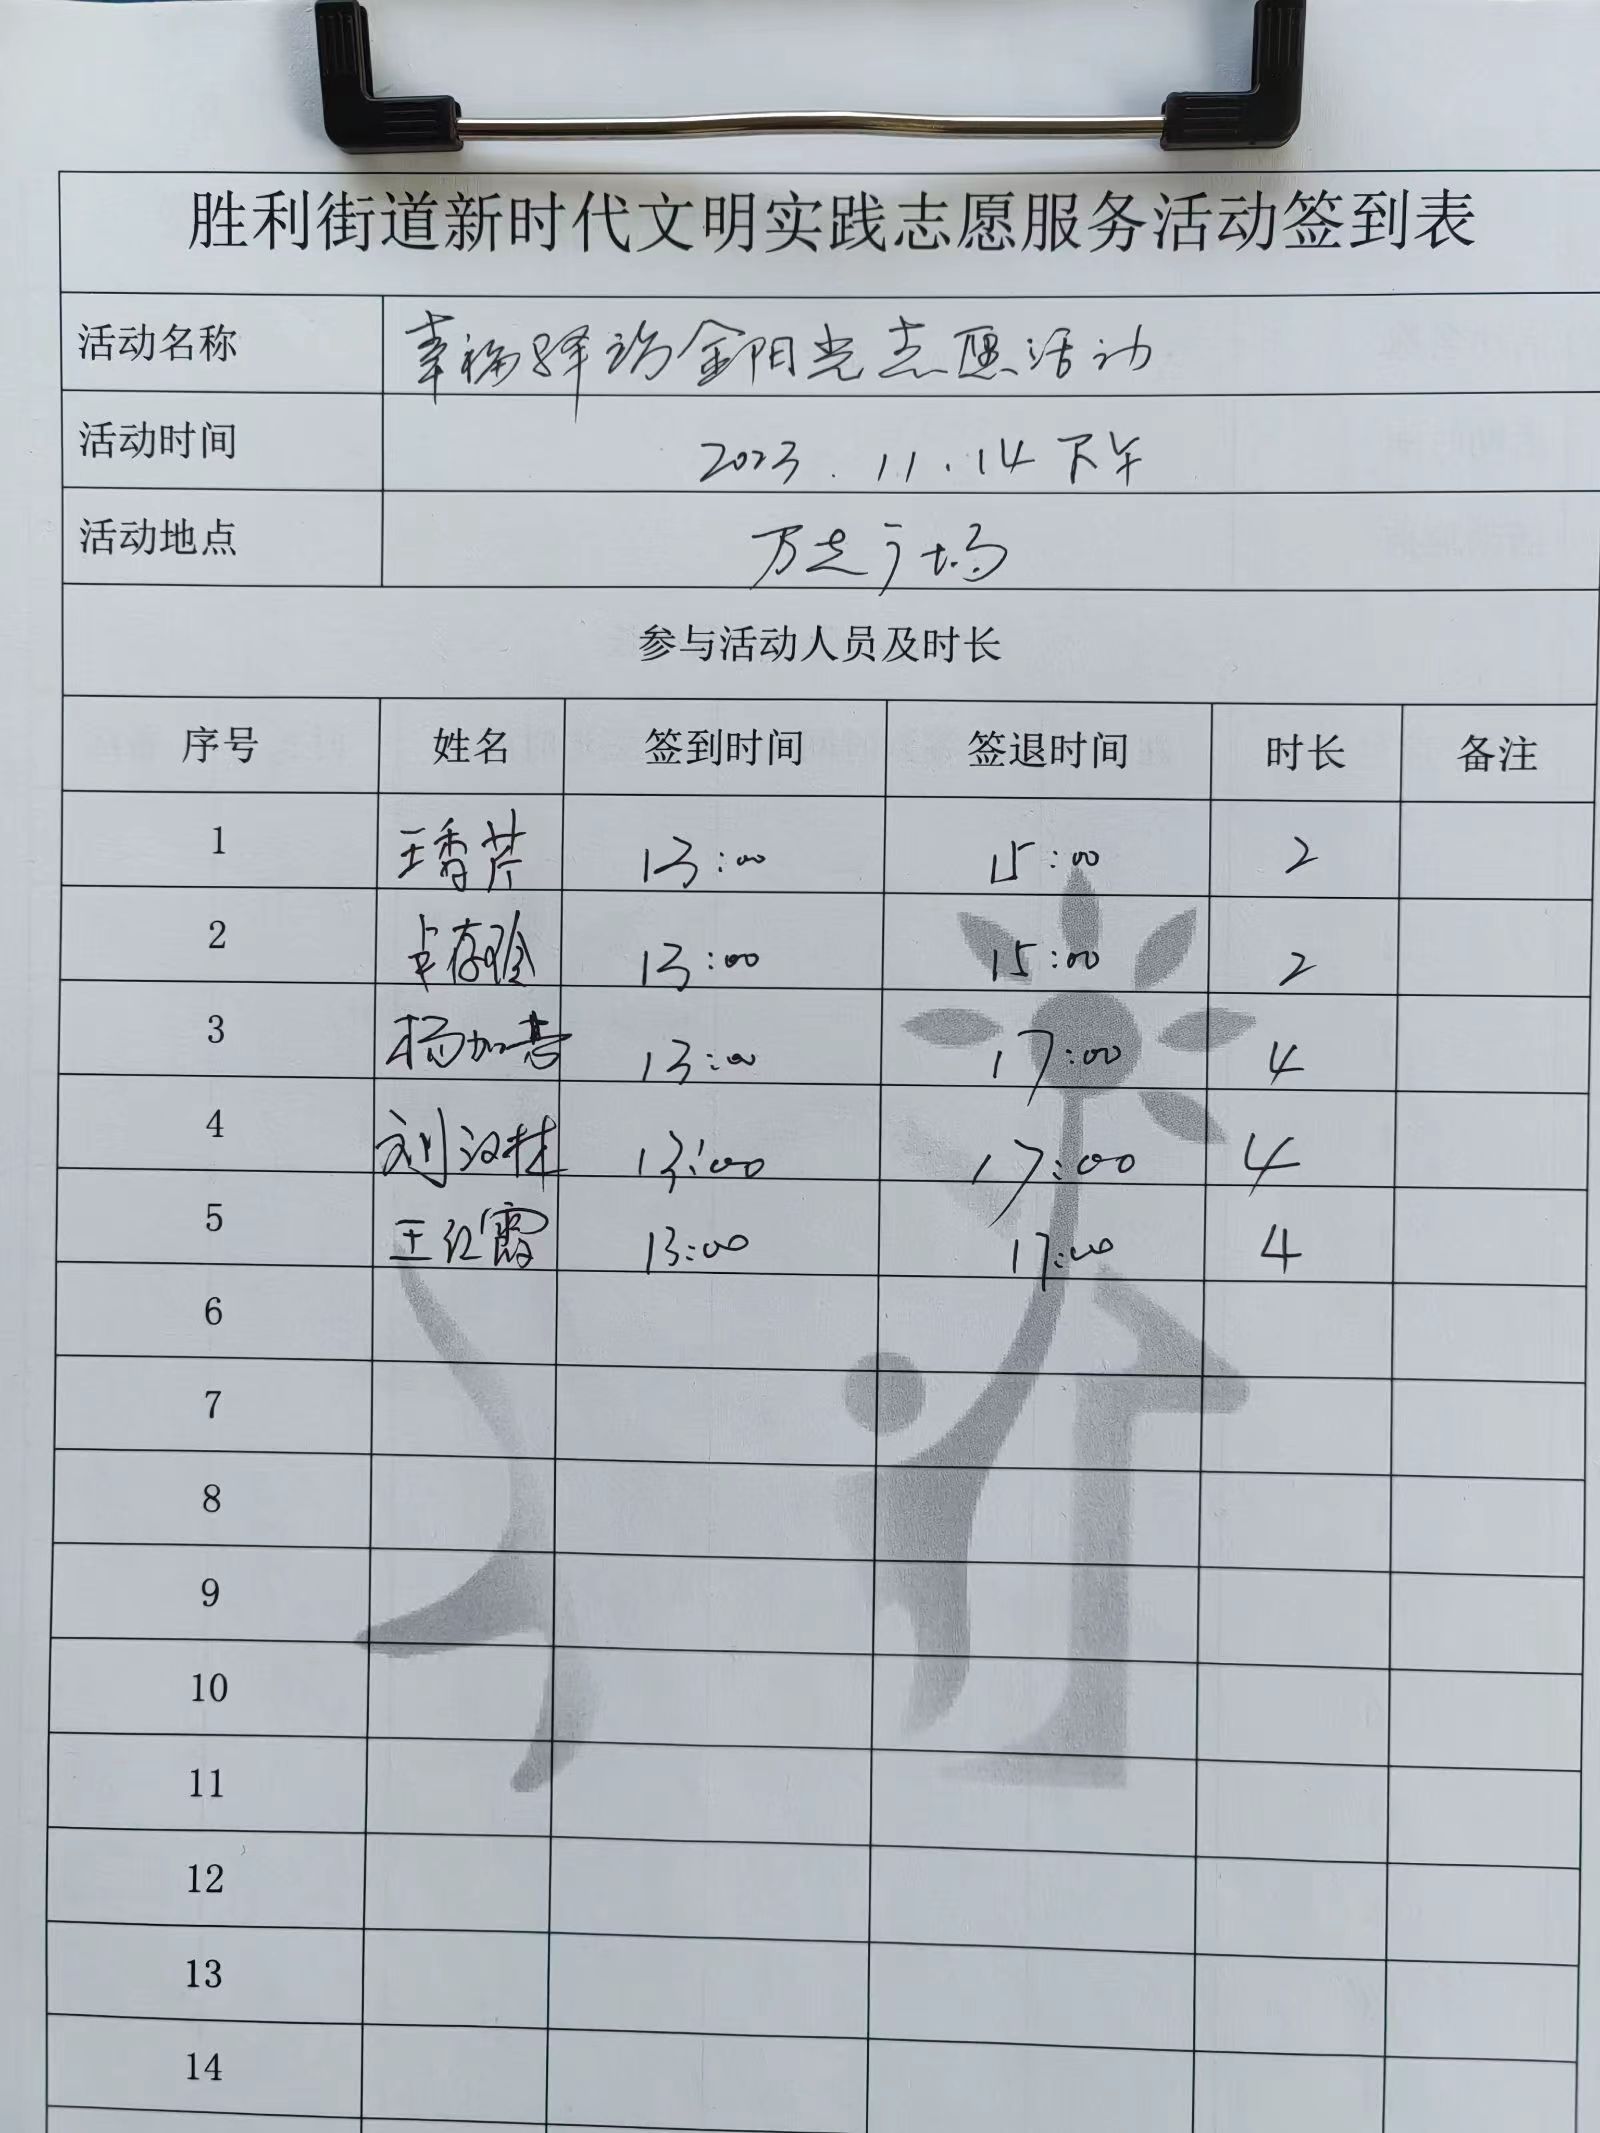 胜利街道新时代文明实践志愿服务活动签到表
活动名称 幸福驿站金阳光志愿活动
活动时间 2023.11.14下午
活动地点 万达广场
参与活动人员及时长
序号 姓名 签到时间 签退时间 时长 备注
1 王香芹 13:00 15:00 2
2 13:00 15:00 2
3 杨加慧 13:00 17:00 4
4 刘汉林 13:00 17:00 4
5 王红霞 13:00 17:00 4
6
7
8
9
10
11
12
13
14